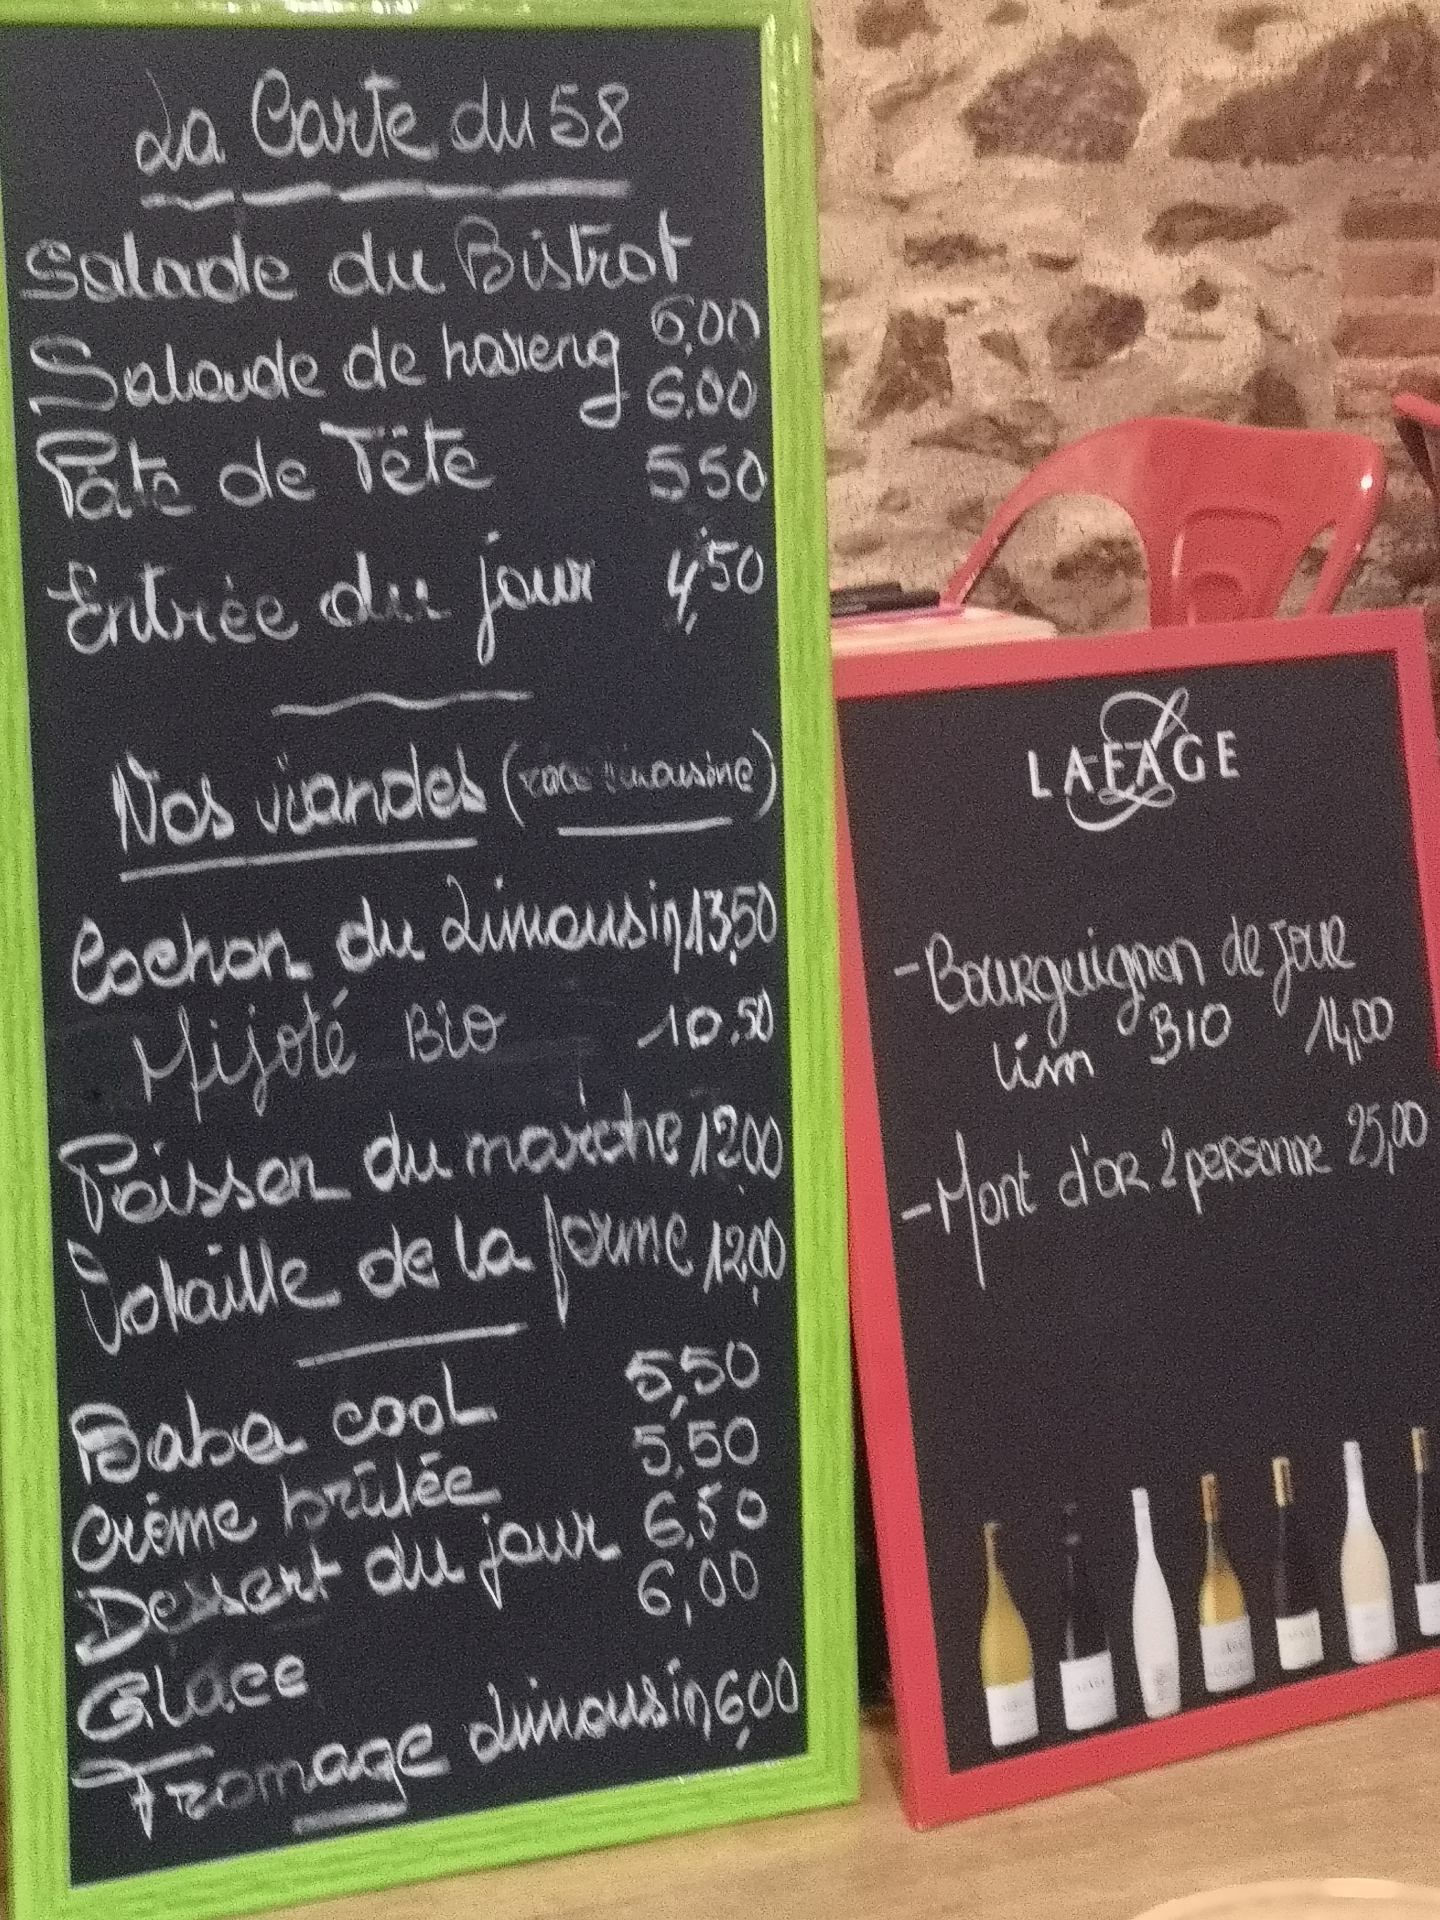 La Carte du 58
Salade du Bistrot
6,00
Salade de hareng 6.00
Pâté de Tête 550
Entrée du jour 4,50
Nos viandes (race limousine)
Cochon du Limousin 13,50
Mijoté BIO 10.50
Poisson du marché 12,00
Volaille de la ferme 12,00
Baba cool 5,50
Crème brûlée 5,50
Dessert du jour 6,50
Glace 6,00
Fromage Limousin 6,00
LAFAGE
- Bourguignon de joue
lim BIO 14,00
- Mont d'or 2 personne 25,00